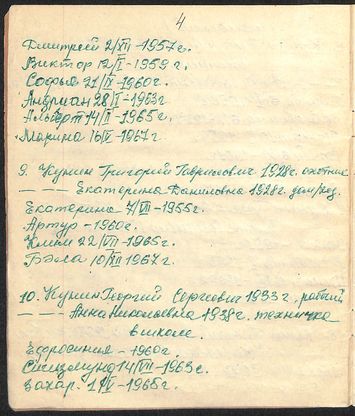 4
Дмитрий 2/XII-1957г.
Виктор 12/I-1959г.
Софья 21/IX-1960г.
Андриан 28/I-1963г.
Альберт 14/II-1965г.
Марина 16/V-1967г.
9. Кунин Григорий Гаврилович 1928г. охотник
— — — Екатерина Даниловна 1928г. дом/хоз.
Екатерина 7/VII-1955г.
Артур - 1960г.
Клим 22/VII-1965г.
Бэла 10/XII 1967г.
10. Кунин Георгий Сергеевич 1933г., рабочий
— — — Анна Николаевна 1938г. техничка
в школе.
Ефросиния - 1960г.
Сигизмунд 14/VII-1963г.
Захар. 1/V-1965г.